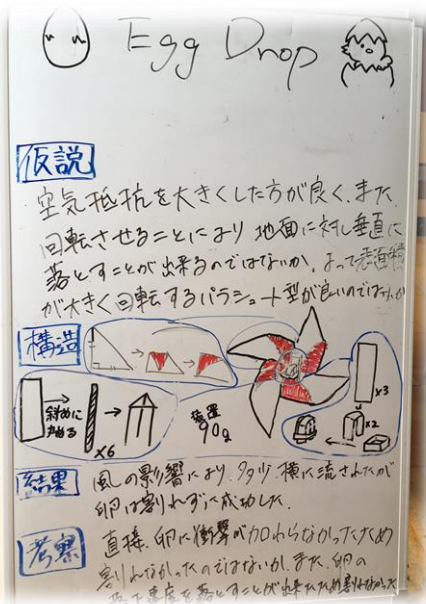 Egg Drop
仮説
空気抵抗を大きくした方が良く、また
回転させることにより地面に対し垂直に
落とすことが出来るのではないか。よって表面積
が大きく回転するパラシュート型が良いのではないか
構造
斜めに
丸める
×6
装置
90g
×3
×2
結果
風の影響により、多少、横に流されたが
卵は割れずに成功した。
考察
直接、卵に衝撃が加わらなかったため
割れなかったのではないか。また、卵の
落下速度を落とすことが出来たため割れなかった